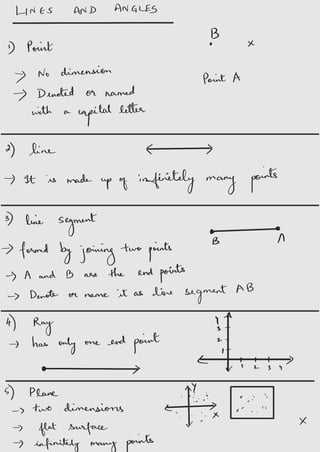 LINES AND ANGLES
1) Point
B
x
→ No dimension
Point A
→ Denoted or named
with a capital letter
2) line
→ It is made up of infinetely many points
3) line segment
B A
→ formed by joining two points
→ A and B are the end points
→ Denote or name it as line segment AB
4) Ray
→ has only one end point
3
2
1
1 2 3 4
5) Plane
Y
X
→ two dimensions
→ flat surface
x
→ infinitely many points